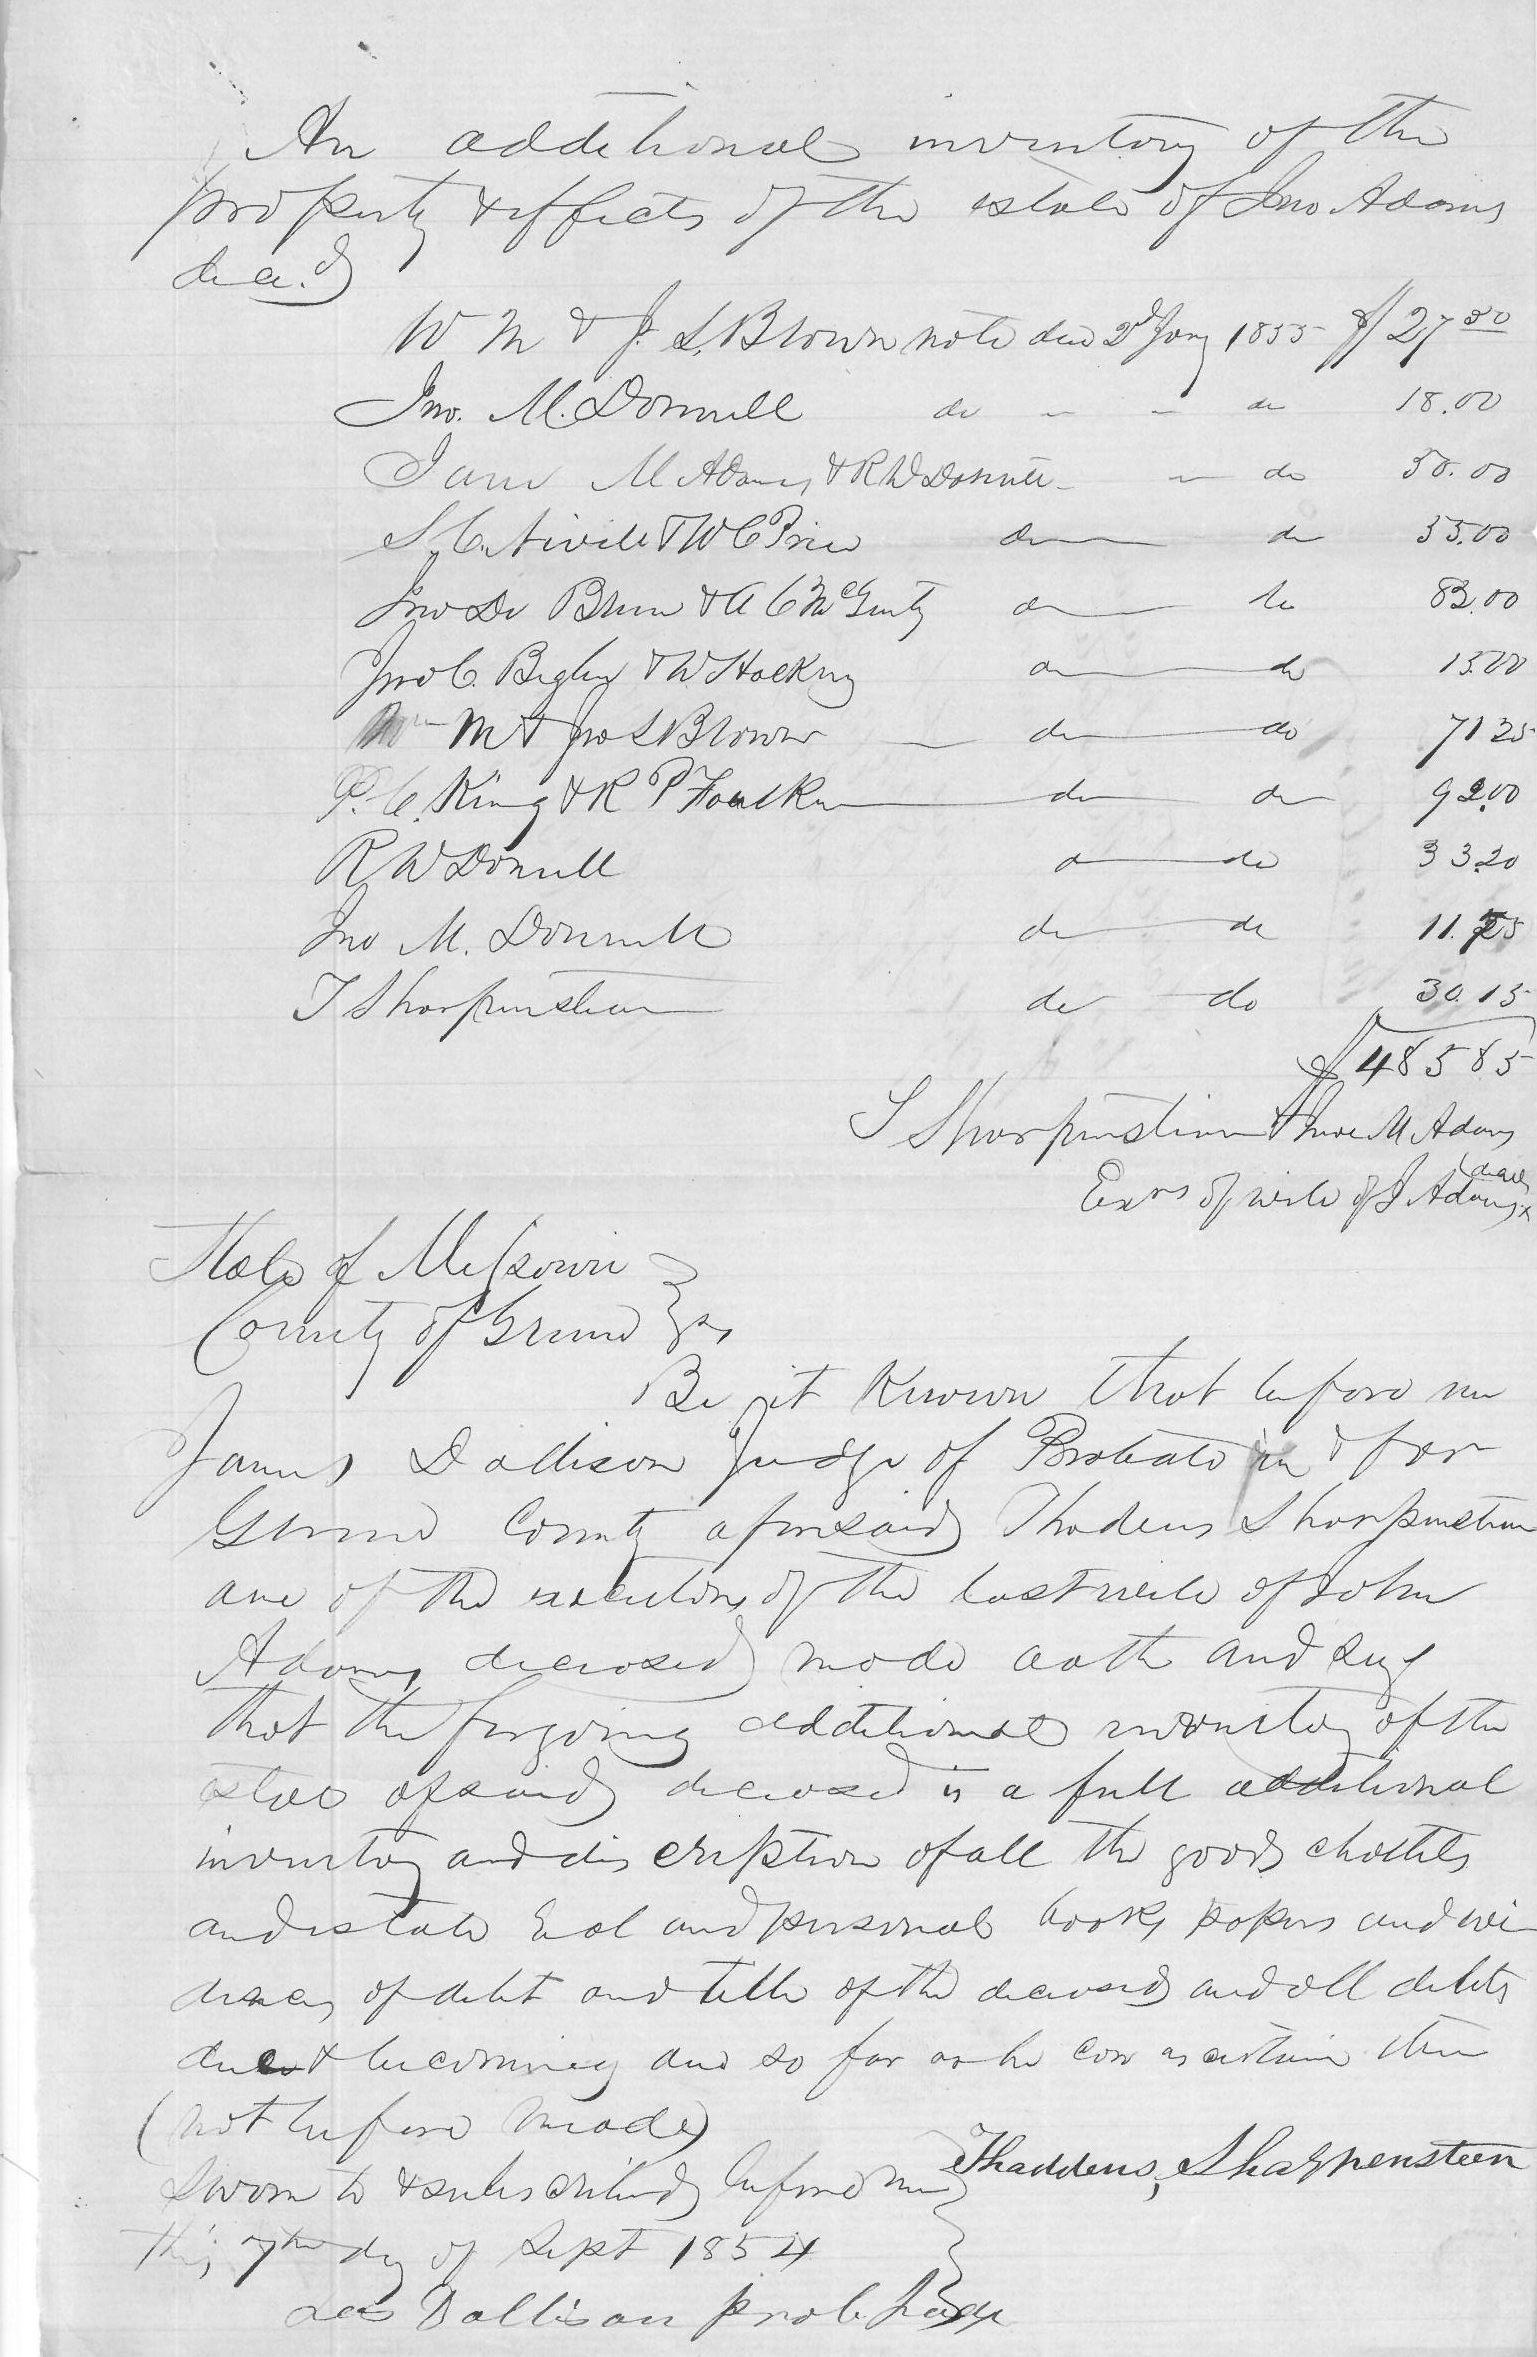 An additional inventory of the
property & effects of the estate of Jno Adams
decd
W M & J. S. Brown note due 2d Jany 1855 $27.50
Jno. M. Donnell do " " do 18.00
Jane M Adams & R W Donnell " do 50.00
S. C. Nevill & W C Price do do 55.00
Jno De Bruin & A C McGinty do do 82.00
Jno C. Bigbey & W Hackney do do 15.00
Wm M & Jno S Brown do do 71 25
P. C. King & R P Faulkner do do 92.00
R W Donnell do do 33.20
Jno M. Donnell do do 11.75
T Sharpenstein do do 30.15
$485 85
T Sharpenstein & Jane M Adams
Exrs of will of J Adams decd
State of Missouri
County of Greene } ss
Be it known that before me
James Dollison Judge of Probate in & for
Greene County aforesaid Thadeus Sharpenstein
one of the executors of the last will of John
Adams deceased made oath and says
that the forgoing additional inventory of the
estate of said deceased is a full additional
inventory and discription of all the goods chattels
and estate real and personal books papers and evi
dences of debt and title of the deceased and all debts
due & becoming due so far as he can ascertain them
(not before made)
Sworn to & subscribed before me } Thaddeus, Sharpensteen
this 7th day of Sept 1854
Dollison prob. Judge